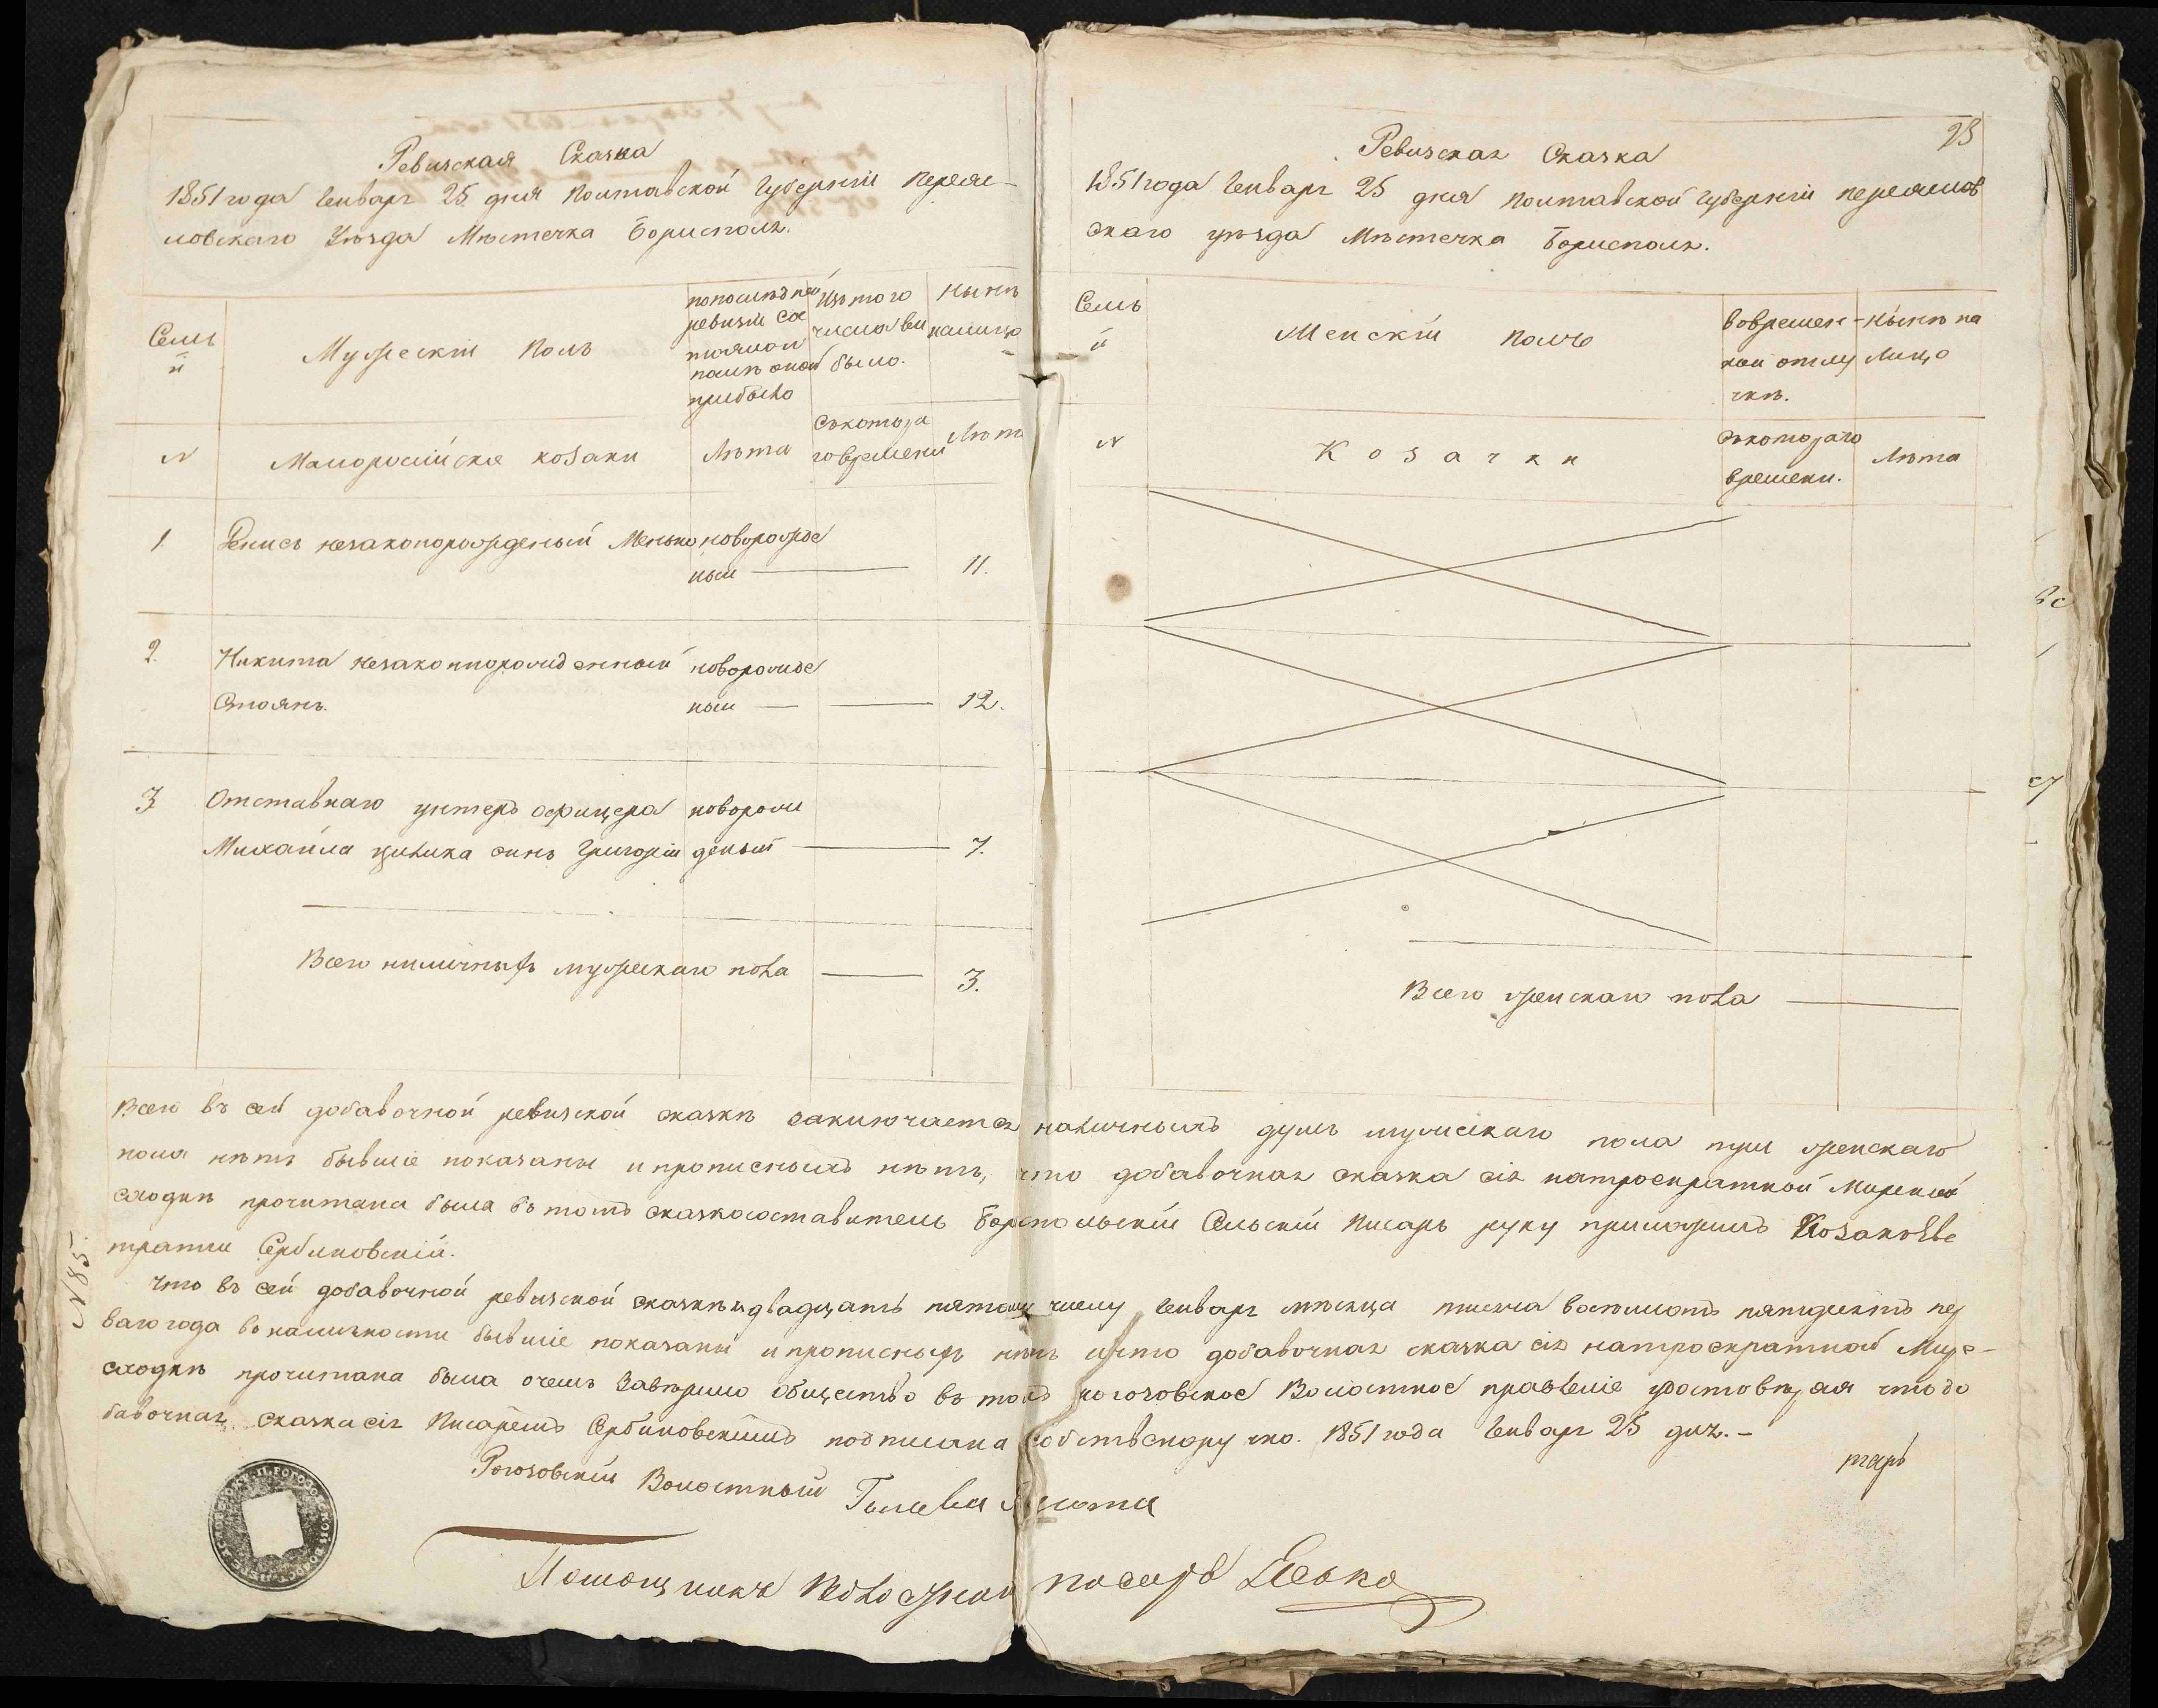 Ревизская Сказка
1851 года Генваря 25 дня Полтавской Губерніи Переяс-
ловскаго Уѣзда Мѣстечка Борисполя.
Семьи
Мужескій Полъ
по последней ревизіи состояло и послѣ оной прибыло
Изъ того числа выбыло.
Нынѣ налицо
N
Малоросійскіе козаки
Лѣта
Съ котора
го времени
Лѣта
1. Денисъ незаконорожденый Менько новорожде
ный 11.
2. Никита незаконнорожденный новорожде
Стоянъ. ный 12.
3 Отставнаго унтеръ офицера новорож
Михайла Цилика синъ Григорій деный 7.
Всего наличныхъ мужескаго пола 3.
28
Ревизская Сказка
1851 года Генваря 25 дня Полтавской Губерніи Переяслов
скаго уѣзда Мѣстечка Борисполя.
Семьи
Женскій полъ
во времен-
ной отлу
чкѣ.
Нынѣ на
лицо
N
Козачки
Съ котораго
времени.
Лѣта
Всего женскаго пола
Всего въ сей добавочной ревизской сказкѣ заключается наличныхъ душъ мужескаго пола три женскаго
пола нѣтъ бывшіе показаны и прописныхъ нѣтъ, что добавочная сказка сія натроекратной Мирской
сходкѣ прочитана была въ томъ сказкосоставитель Борispольскій Сельскій Писарь руку приложилъ Козакъ Евс
тратій Сербиновскій.
Что въ сей добавочной ревизской сказкѣ къ двадцать пятому числу Генваря мѣсяца тисяча восемсотъ пятдесятъ пер
ваго года въ наличности бывшіе показаны и прописныхъ нѣтъ и что добавочная сказка сія натроекратной Мирс-
сходкѣ прочитана была о чемъ завѣрило общество въ томъ Рогозовское Волостное правленіе удостовѣряя что до
бавочная сказка сія Писаремъ Сербиновскимъ подписана собственоручно. 1851 года Генваря 25 дня.-
Рогозовскій Волостный Голова
Помощникъ Волостнаго писаря
N 85.